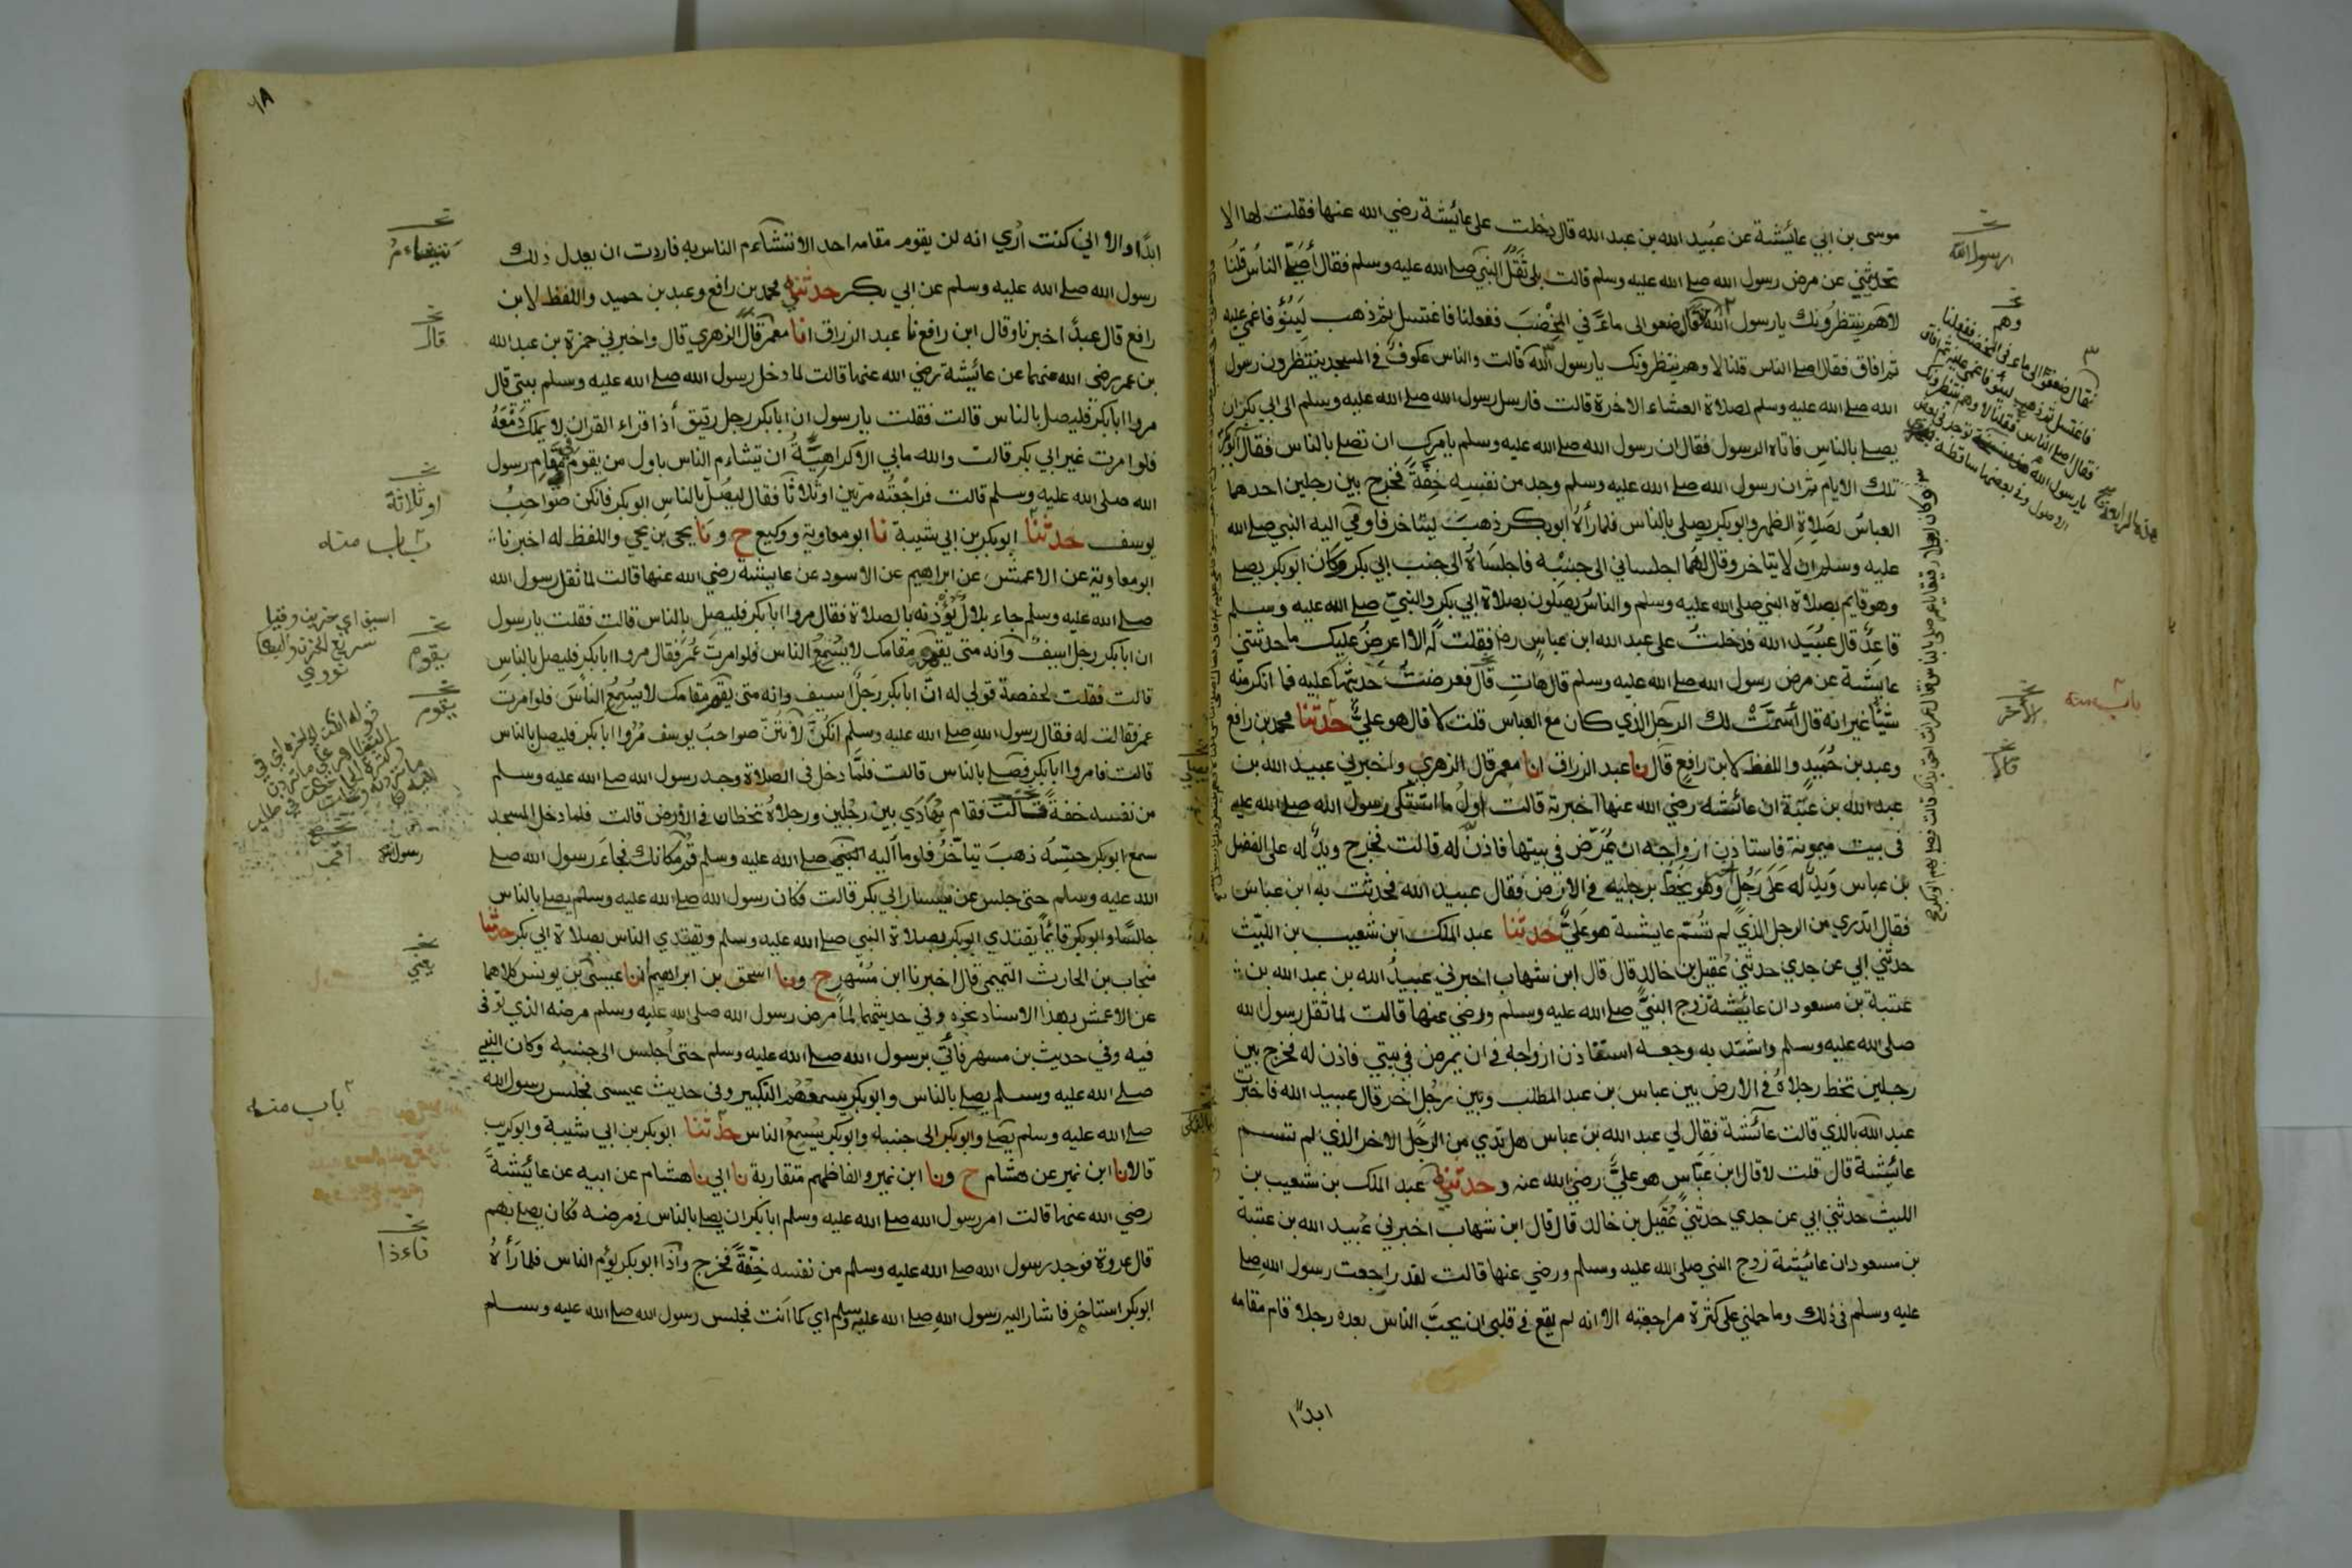 موسى بن ابي عائيشة عن عبيد الله بن عبد الله قال دخلت على عائيشة رضي الله عنها فقلت لها الا
تحدثيني عن مرض رسول الله صلى الله عليه وسلم قالت بلى ثقل النبي صلى الله عليه وسلم فقال أصلى الناس قلنا
لا هم ينتظرونك يا رسول الله قال ضعوا لي ماءً في المخضب ففعلنا فاغتسل ثم ذهب لينوء فاغمي عليه
ثم افاق فقال اصلى الناس قلنا لا وهم ينتظرونك يا رسول الله قالت والناس عكوف في المسجد ينتظرون رسول
الله صلى الله عليه وسلم لصلاة العشاء الاخرة قالت فارسل رسول الله صلى الله عليه وسلم الى ابي بكر ان
يصلى بالناس فاتاه الرسول فقال ان رسول الله صلى الله عليه وسلم يامرك ان تصلى بالناس فقال ابو بكر
تلك الايام ثم ان رسول الله صلى الله عليه وسلم وجد من نفسه خفةً فخرج بين رجلين احدهما
العباس لصلاة الظهر وابو بكر يصلى بالناس فلما رآه ابو بكر ذهب ليتاخر فاومى اليه النبي صلى الله
عليه وسلم ان لا يتاخر وقال لهما اجلساني الى جنبه فاجلساه الى جنب ابي بكر وكان ابو بكر يصلى
وهو قايم بصلاة النبي صلى الله عليه وسلم والناس يصلون بصلاة ابي بكر والنبي صلى الله عليه وسلم
قاعد قال عبيد الله فدخلت على عبد الله ابن عباس رضا فقلت له الا اعرض عليك ما حدثتني
عايشة عن مرض رسول الله صلى الله عليه وسلم قال هات قال فعرضت حديثها عليه فما انكر منه
شيًا غير انه قال أسمّت لك الرجل الذي كان مع العباس قلت لا قال هو علي حدثنا محمد بن رافع
وعبد بن حميد واللفظ لابن رافع قال نا عبد الرزاق انا معمر قال الزهري واخبرني عبيد الله بن
عبد الله بن عتبة ان عائشة رضي الله عنها اخبرته قالت اول ما اشتكى رسول الله صلى الله عليه
في بيت ميمونة فاستاذن ازواجه ان يمرض في بيتها فاذن له قالت فخرج ويد له على الفضل
بن عباس ويد له على رجل وهو يخط برجليه في الارض فقال عبيد الله فحدثت به ابن عباس
فقال اتدري من الرجل الذي لم تسم عايشة هو علي حدثنا عبد الملك ابن شعيب بن الليث
حدثني ابي عن جدي حدثني عقيل بن خالد قال قال ابن شهاب اخبرني عبيد الله بن عبد الله بن
عتبة بن مسعود ان عائيشة زوج النبي صلى الله عليه وسلم ورضي عنها قالت لما ثقل رسول الله
صلى الله عليه وسلم واشتد به وجعه استاذن ازواجه في ان يمرض في بيتي فاذن له فخرج بين
رجلين تخط رجلاه في الارض بين عباس بن عبد المطلب وبين رجل اخر قال عبيد الله فاخبرت
عبد الله بالذي قالت عائشة فقال لي عبد الله بن عباس هل تدي من الرجل الاخر الذي لم تسم
عائشة قال قلت لا قال ابن عباس هو علي رضي الله عنه وحدثنيه عبد الملك بن شعيب بن
الليث حدثني ابي عن جدي حدثني عقيل بن خالد قال قال ابن شهاب اخبرني عبيد الله بن عبد الله بن عتبة
بن مسعود ان عائيشة زوج النبي صلى الله عليه وسلم ورضي عنها قالت لقد راجعت رسول الله صلى
عليه وسلم في ذلك وما حملني على كثرة مراجعته الا انه لم يقع في قلبي ان يحب الناس بعده رجلا قام مقامه
ابدًا
الرسول الله
وهم
الأخر
قال
باب منه
٦٨
ابدًا والا اني كنت أري انه لن يقوم مقامه احد الا تتشاءم الناس به فاردت ان يعدل ذلك
رسول الله صلى الله عليه وسلم عن ابي بكر حدثنيه محمد بن رافع وعبد بن حميد واللفظ لابن
رافع قال عبد اخبرنا وقال ابن رافع نا عبد الرزاق انا معمر قال الزهري قال واخبرني حمزة بن عبد الله
بن عمر رضي الله عنهما عن عائيشة رضي الله عنها قالت لما دخل رسول الله صلى الله عليه وسلم بيتي قال
مروا ابا بكر فليصل بالناس قالت فقلت يا رسول ان ابا بكر رجل رقيق أذا قراء القران لا يملك دمعه
فلو امرت غير ابي بكر قالت والله ما بي الا كراهية ان يتشاءم الناس باول من يقوم في مقام رسول
الله صلى الله عليه وسلم قالت فراجعته مرتين او ثلاثًا فقال ليصل بالناس ابو بكر فانكن صواحب
يوسف حدثنا ابو بكر بن ابي شيبة نا ابو معاوية ووكيع ح ونا يحيى بن يحيى واللفظ له اخبرنا
ابو معاوية عن الاعمش عن ابراهيم عن الاسود عن عايشة رضي الله عنها قالت لما ثقل رسول الله
صلى الله عليه وسلم جاء بلال يؤذنه بالصلاة فقال مروا ابا بكر فليصل بالناس قالت فقلت يا رسول
ان ابا بكر رجل اسيف وانه متى يقم مقامك لا يسمع الناس فلو امرت عمر فقال مروا ابا بكر فليصل بالناس
قالت فقلت لحفصة قولي له ان ابا بكر رجلًا اسيف وانه متى يقم مقامك لا يسمع الناس فلو امرت
عمر فقالت له فقال رسول الله صلى الله عليه وسلم انكن لأنتن صواحب يوسف مروا ابا بكر فليصل بالناس
قالت فامروا ابا بكر فصلى بالناس قالت فلما دخل في الصلاة وجد رسول الله صلى الله عليه وسلم
من نفسه خفة قالت فقام يهادي بين رجلين ورجلاه تخطان في الأرض قالت فلما دخل المسجد
سمع ابو بكر حسه ذهب يتاخر فاوما اليه النبي صلى الله عليه وسلم قم مكانك فجاء رسول الله صلى
الله عليه وسلم حتى جلس عن يسار ابي بكر قالت فكان رسول الله صلى الله عليه وسلم يصلى بالناس
جالسًا وابو بكر قائمًا يقتدي ابو بكر بصلاة النبي صلى الله عليه وسلم ويقتدي الناس بصلاة ابي بكر حدثنا
منجاب بن الحارث التميمي قال اخبرنا ابن مسهر ح ونا اسحق بن ابراهيم انا عيسى بن يونس كلاهما
عن الاعمش بهذا الاسناد نحوه وفي حديثهما لما مرض رسول الله صلى الله عليه وسلم مرضه الذي توفى
فيه وفي حديث بن مسهر فأتي برسول الله صلى الله عليه وسلم حتى أجلس الى جنبه وكان النبي
صلى الله عليه وسلم يصلى بالناس وابو بكر يسمعهم التكبير وفي حديث عيسى فجلس رسول الله
صلى الله عليه وسلم يصلى وابو بكر الى جنبه وابو بكر يسمع الناس حدثنا ابو بكر بن ابي شيبة وابو كريب
قالا نا ابن نمير عن هشام ح ونا ابن نمير والفاظهم متقاربة نا ابي نا هشام عن ابيه عن عائيشة
رضي الله عنها قالت امر رسول الله صلى الله عليه وسلم ابا بكر ان يصلى بالناس في مرضه فكان يصلى بهم
قال عروة فوجد رسول الله صلى الله عليه وسلم من نفسه خفةً فخرج وأذا ابو بكر يؤم الناس فلما رأه
ابو بكر استاخر فاشار اليه رسول الله صلى الله عليه وسلم اي كما انت فجلس رسول الله صلى الله عليه وسلم
قال
او ثلاثة
باب منه
اسيف اي حزين وقيل
سريع الحزن والبكا
نووي
يقوم
يقوم
رسول الله
يعني
باب منه
فاءذا